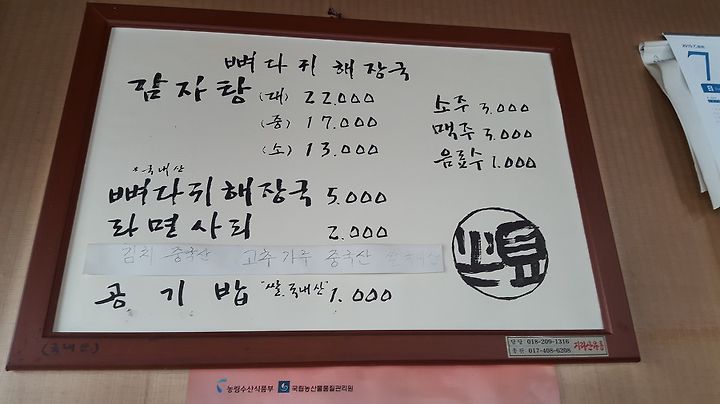 뼈다귀 해장국
감자탕 (대) 22.000
(중) 17.000
(소) 13.000
소주 3.000
맥주 3.000
음료수 1.000
국내산
뼈다귀해장국 5.000
라면사리 2.000
김치 중국산 고추가루 중국산 쌀 국내산
공기밥 "쌀.국내산" 1.000
담당 018-209-1316
017-408-6208
농림수산식품부 국립농산물품질관리원
7